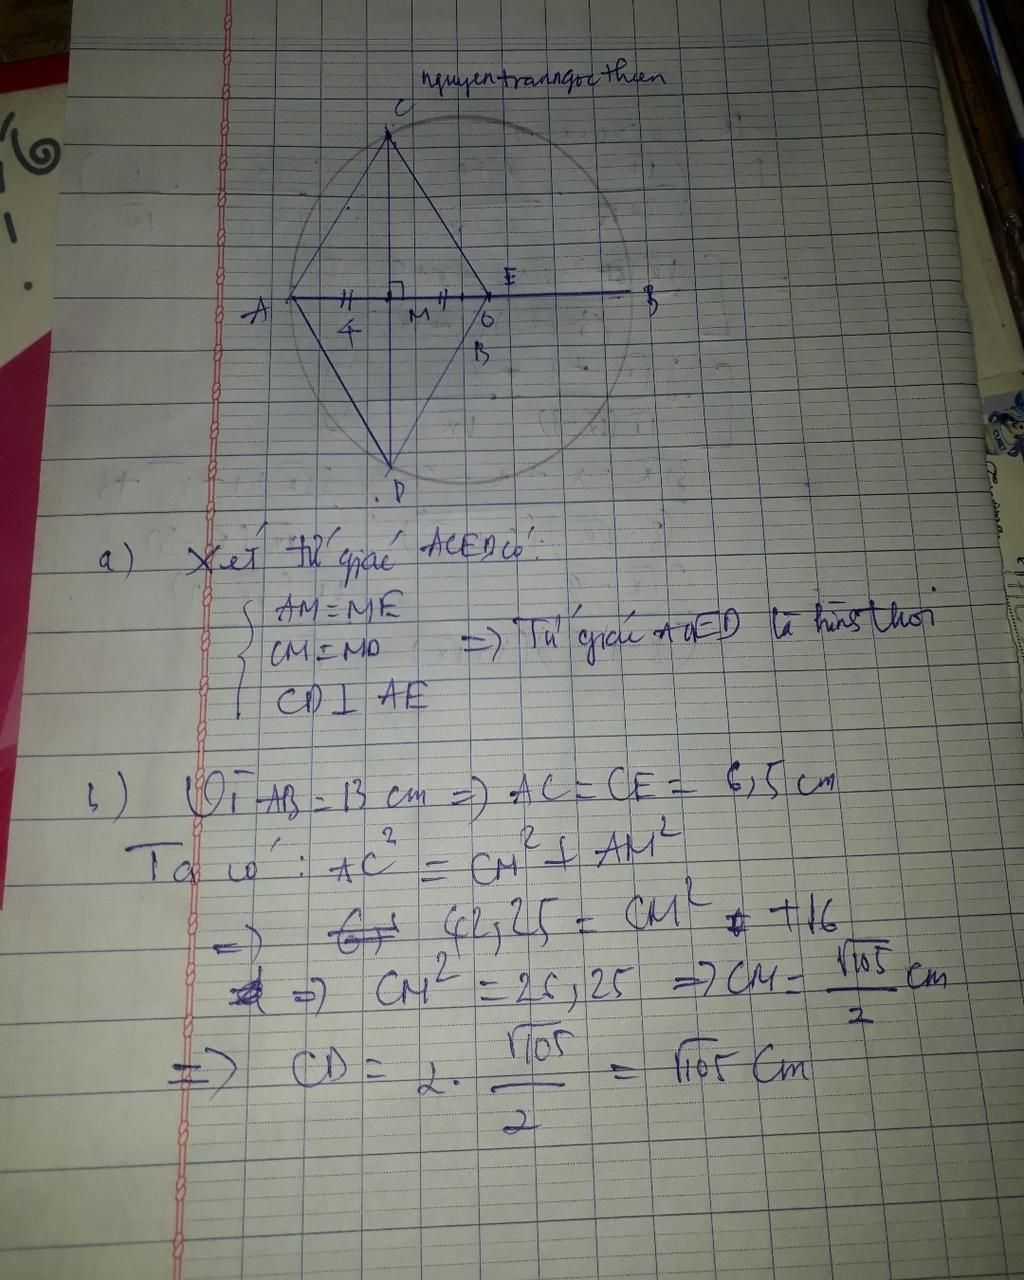 nguyentranngocthien
C
E
A
M
4
O
B
B
D
a) Xét tứ giác ACED có:
AM = ME
CM = MD => Tứ giác ACED là hình thoi
CD ⊥ AE
b) Vì AB = 13 cm => AC = CE = 6,5 cm
Ta có: AC² = CM² + AM²
=> 42,25 = CM² + 16
=> CM² = 25,25 => CM = √105/2 cm
=> CD = 2. √105/2 = √105 cm